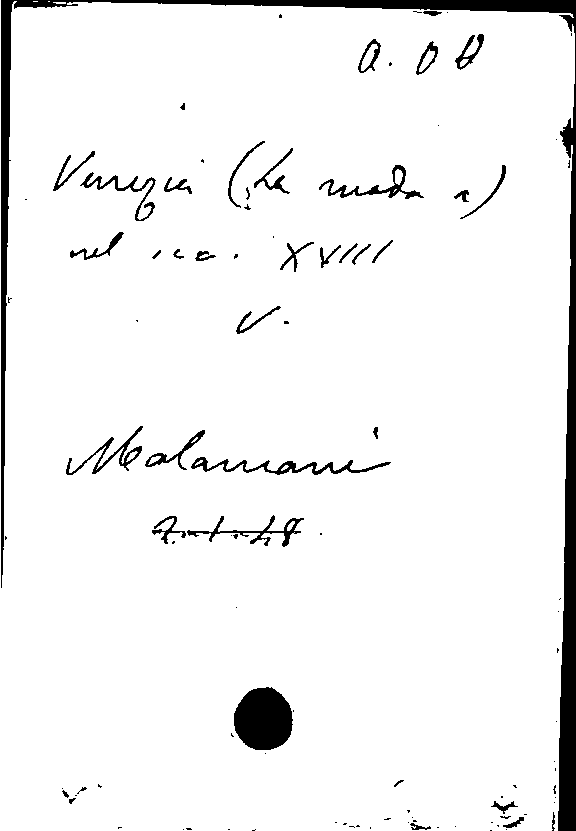 Venezia (La moda a)
nel sec. XVIII
V.
Malamani